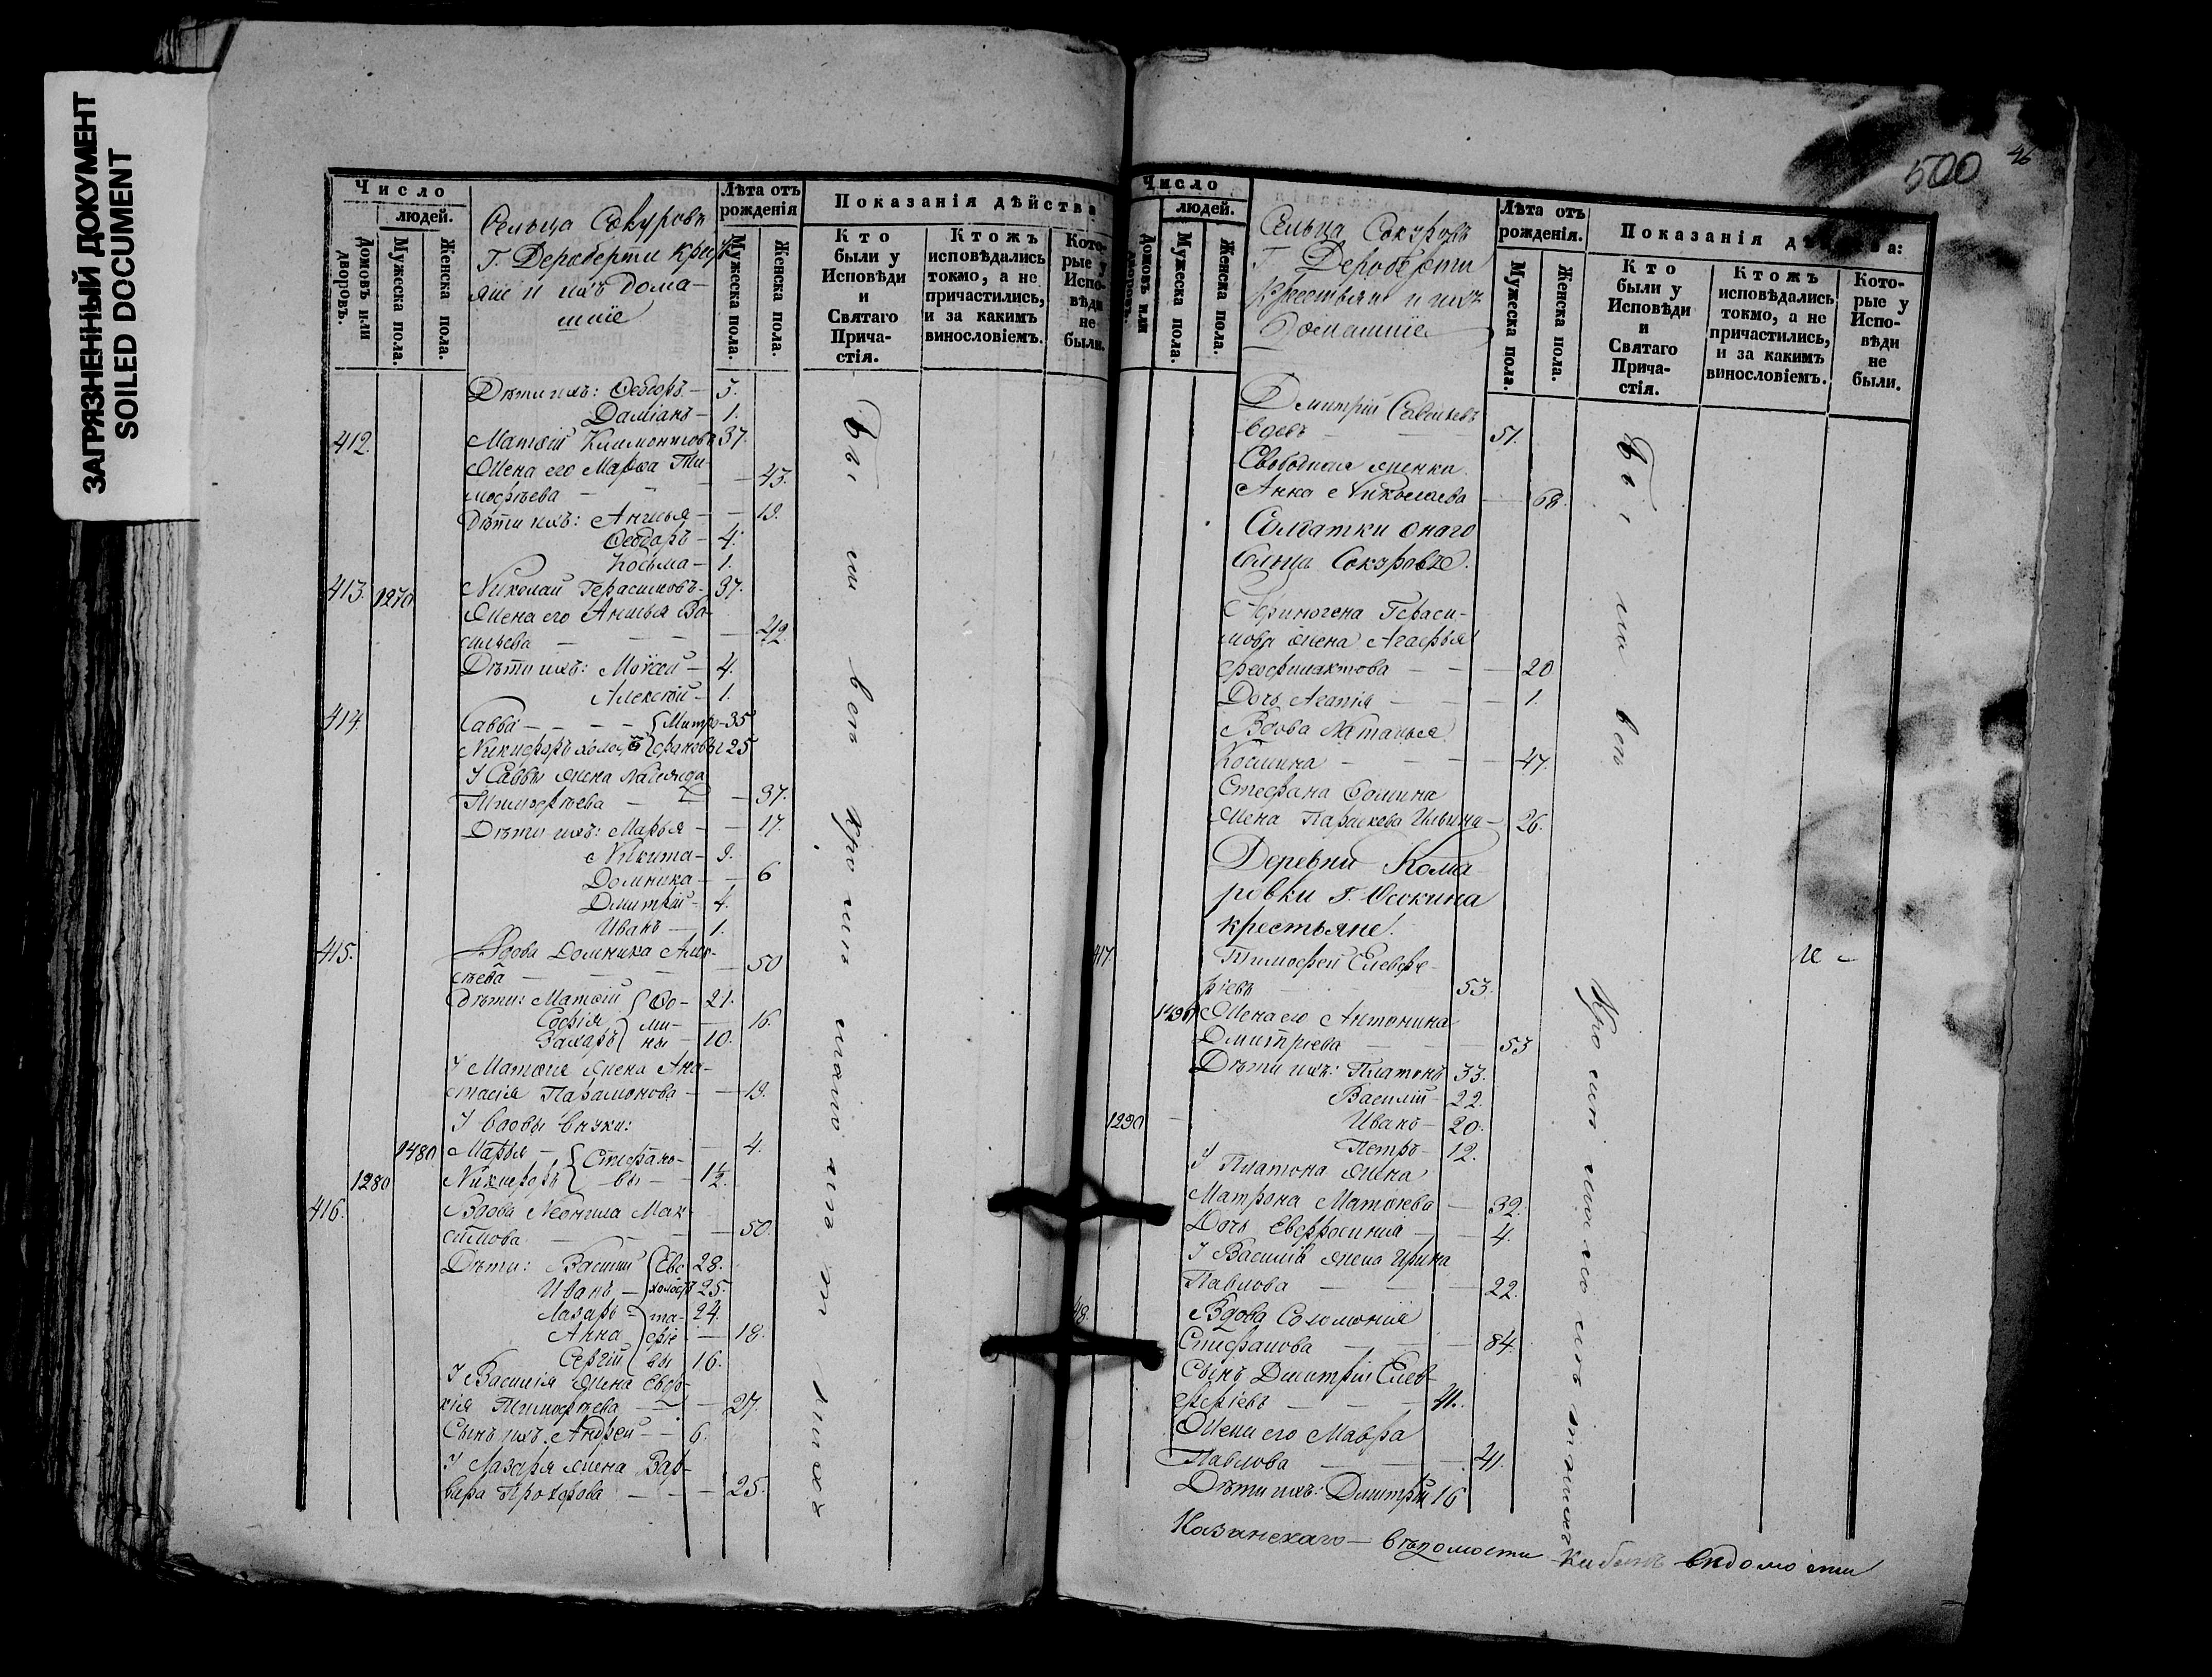 ЗАГРЯЗНЕННЫЙ ДОКУМЕНТ
SOILED DOCUMENT
Число
людей.
Домовъ или дворовъ.
Мужеска пола.
Женска пола.
Сельца Сокуровъ
Г. Дероберти крест
яне и ихъ дома-
шніе
Лѣта отъ рожденія
Мужеска пола.
Женска пола.
Показанія дѣйства
Кто были у Исповѣди и Святаго Прича-стія.
Ктожъ исповѣдались токмо, а не причастились, и за какимъ винословіемъ.
Кото-рые у Испо-вѣди не были.
Дѣти ихъ: Ѳеодоръ — 5.
Даміанъ — 1.
412. Матѳій Климонтовъ 37.
Жена его Марѳа Ти-
мофѣева — 43.
Дѣти ихъ: Анисья — 19.
Ѳеодоръ — 4.
Косьма — 1.
413. 1270 Николай Герасимовъ — 37.
Жена его Анисья Ва-
сильева — 42
Дѣти ихъ: Моѵсей — 4.
Алексѣй — 1.
414. Савва — — {Митро- 35
Никифоръ холостъ {фановы 25
У Саввы жена
Тимофеева — 37.
Дѣти ихъ: Марья — 17.
Никита — 9.
Домника — 6
Дмитрій — 4.
Иванъ — 1.
415. Вдова Домника Але-
сѣева — 50
Дѣти: Матѳій {Ѳо- 21.
Софія { ми- — 16.
Захаръ { ны — 10.
У Матѳія жена Ана-
стасія Парамонова — 19.
У вдовы внуки:
1480 Марья — {Стефано- — 4.
1280 Никифоръ { — вы — 1½.
416. Вдова Неонила Мак-
симова — 50.
Дѣти: Василій {Евс 28.
Иванъ — {холостъ 25.
Лазарь — }та- 24.
Анна }фіе — 18.
Сергій { вы 16.
У Василія жена Евдо-
кія Тимофеева — 27.
Сынъ ихъ Андрей — 6.
У Лазаря жена Вар-
вара Прохорова — 25.
500 46
Число
людей.
Домовъ или дворовъ.
Мужеска пола.
Женска пола.
Сельца Сокуровъ
Г. Дероберти
Крестьяне и ихъ
Домашніе
Лѣта отъ рожденія.
Мужеска пола.
Женска пола.
Показанія дѣйства:
Кто были у Исповѣди и Святаго Прича-стія.
Ктожъ исповѣдались токмо, а не причастились, и за какимъ винословіемъ.
Кото-рые у Испо-вѣди не были.
Дмитрій Савельевъ
вдовъ — 51.
Свободная женка
Анна Николаева — 68.
Солдатки онаго
сельца Сокуровъ.
Герасимова жена Агафья
Феофилактова — 20
Дочь Агапія — 1.
Вдова Наталья
Космина — 47.
Стефана Ѳомина
жена Параскева Ильина — 26.
Деревни Кома
ровки Г. Осокина
крестьяне.
417. Тимофей Елевфе-
ріевъ 53.
1490 Жена его Антонина
Дмитріева — 53
Дѣти ихъ: Платонъ 33.
Василій — 22.
1290 Иванъ — 20.
Петръ — 12.
У Платона жена
Матрона Матѳіева — 32.
Дочь Евфросинія — 4.
У Василія жена Ирина
Павлова — 22.
418. Вдова Соломонія
Стефанова — 84.
Сынъ Дмитрій Елев-
феріевъ — 41.
Жена его Мавра
Павлова — 41.
Дѣти ихъ: Дмитрій 16